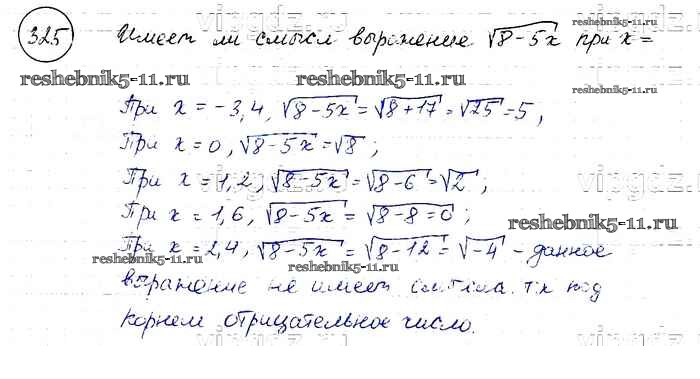 325 Имеет ли смысл выражение √8-5x при x =
reshebnik5-11.ru reshebnik5-11.ru
При x = -3,4, √8-5x = √8+17 = √25 = 5,
reshebnik5-11.ru
При x = 0, √8-5x = √8;
При x = 1,2, √8-5x = √8-6 = √2;
При x = 1,6, √8-5x = √8-8=0;
reshebnik5-11.ru
При x = 2,4, √8-5x = √8-12 = √-4 - данное
reshebnik5-11.ru reshebnik5-11.ru
выражение не имеет смысла, т.к под
корнем отрицательное число.